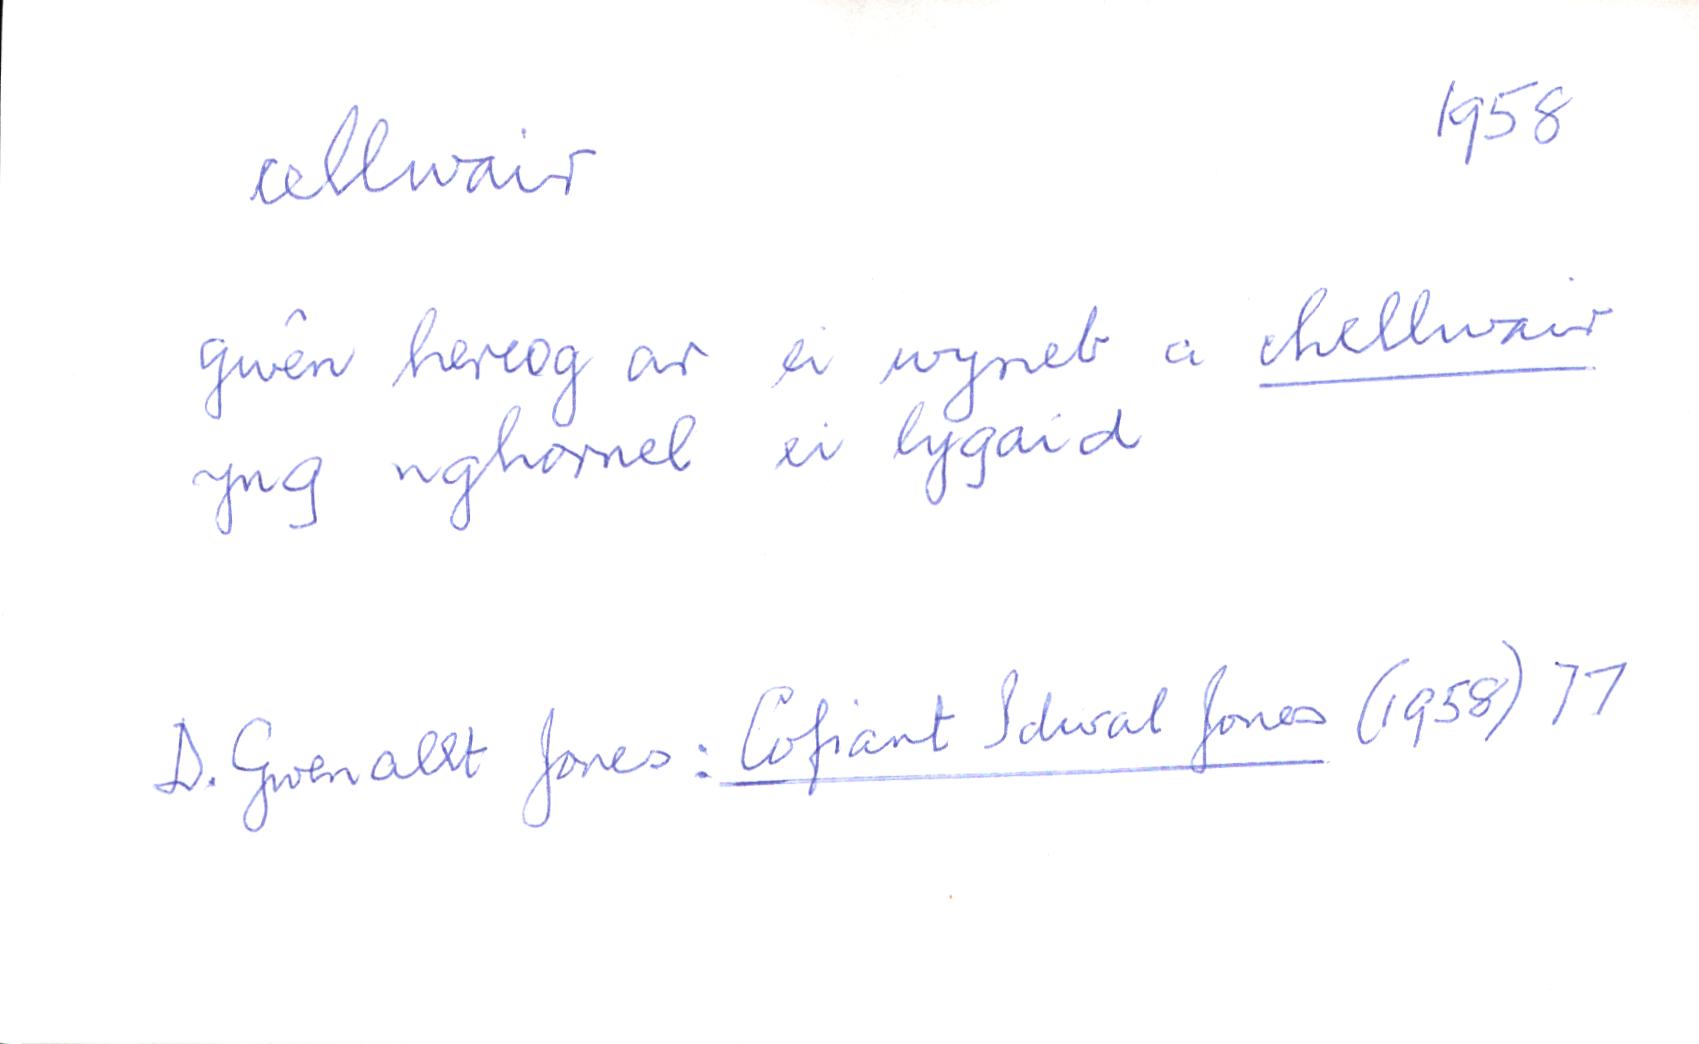 cellwair 1958
gwên heriog ar ei wyneb a chellwair
yng nghornel ei lygaid
D. Gwenallt Jones: Cofiant Idwal Jones (1958) 77